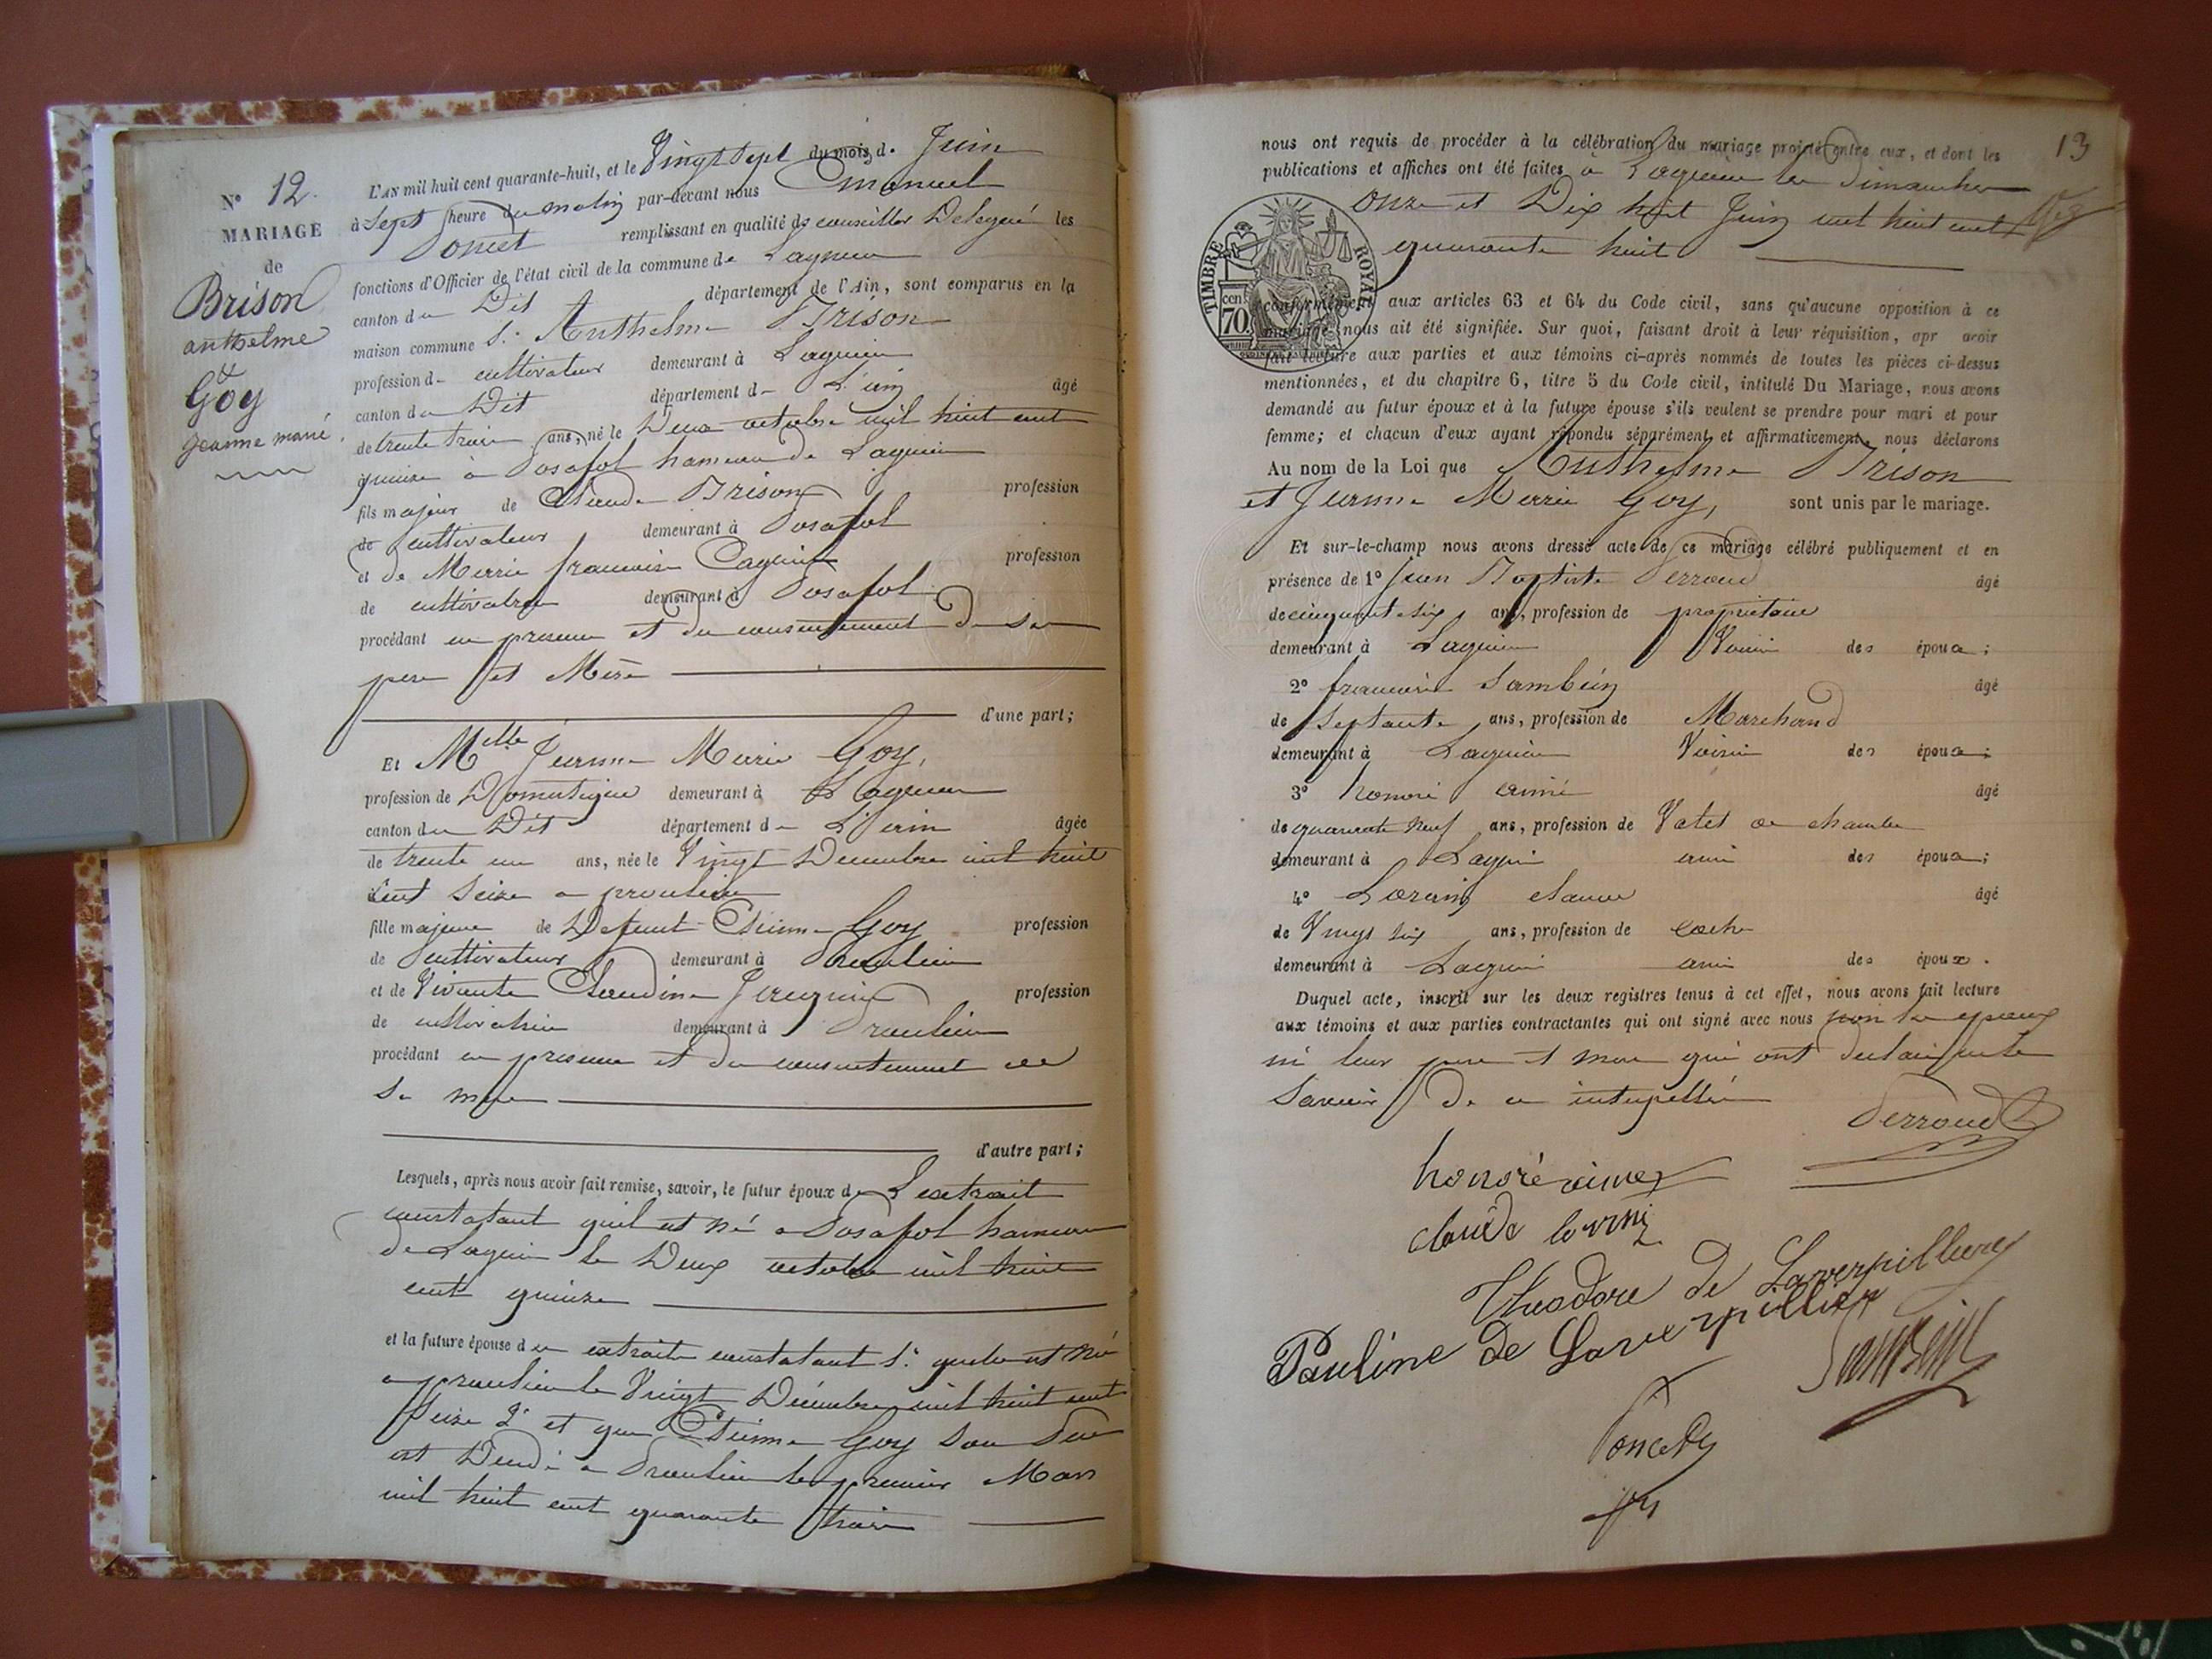 N° 12.
MARIAGE
de
Brison
anthelme
&
Goy
jeanne marie
L'AN mil huit cent quarante-huit, et le Vingt Sept du mois d. Juin
à Sept heure du matin par-devant nous Emanuel
Poncet remplissant en qualité de conseiller Delegué les
fonctions d'Officier de l'état civil de la commune de Lagnieu
canton du Dit département de l'Ain, sont comparus en la
maison commune S.r Anthelme Brison
profession de cultivateur demeurant à Lagnieu
canton du Dit département de L'ain âgé
de trente trois ans, né le Deux octobre mil huit cent
quinze à Posafol hameau de Lagnieu
fils majeur de Claude Brison profession
de cultivateur demeurant à Posafol
et de Marie francoise profession
de cultivatrice demeurant à Posafol
procédant en presence et du consentement de ses
pere et Mère
d'une part;
Et Melle Jeanne Marie Goy,
profession de Domestique demeurant à Lagnieu
canton du Dit département de L'ain âgée
de trente un ans, née le Vingt Decembre mil huit
cent Seize a proulieu
fille majeure de Defunt Etienne Goy profession
de cultivateur demeurant à Proulieu
et de Vivante Claudine profession
de cultivatrice demeurant à Proulieu
procédant en presence et du consentement de
Sa mere
d'autre part;
Lesquels, après nous avoir fait remise, savoir, le futur époux de L'extrait
constatant quil est né a Posafol hameau
de Lagnieu le Deux octobre mil huit
cent quinze
et la future épouse d'un extrait constatant 1.° quelle est née
a proulieu le Vingt Décembre mil huit cent
Seize 2° et que Etienne Goy Son Pere
est Decedé a Proulieu le premier Mars
mil huit cent quarante trois
13
nous ont requis de procéder à la célébration du mariage projeté entre eux, et dont les
publications et affiches ont été faites à Lagnieu les Dimanches
onze et Dix huit Juin mil huit cent
quarante huit
TIMBRE ROYAL
70
conformément aux articles 63 et 64 du Code civil, sans qu'aucune opposition à ce
mariage nous ait été signifiée. Sur quoi, faisant droit à leur réquisition, apr avoir
fait lecture aux parties et aux témoins ci-après nommés de toutes les pièces ci-dessus
mentionnées, et du chapitre 6, titre 5 du Code civil, intitulé Du Mariage, nous avons
demandé au futur époux et à la future épouse s'ils veulent se prendre pour mari et pour
femme; et chacun d'eux ayant répondu séparément et affirmativement, nous déclarons
Au nom de la Loi que Anthelme Brison
et Jeanne Marie Goy, sont unis par le mariage.
Et sur-le-champ nous avons dressé acte de ce mariage célébré publiquement et en
présence de 1° Jean Baptiste Perroud âgé
de cinquante six ans, profession de propriétaire
demeurant à Lagnieu Voisin des époux;
2° francois Sambein âgé
de Septante ans, profession de Marchand
demeurant à Lagnieu Voisin des époux;
3° honoré aimé âgé
de quarante neuf ans, profession de Valet de chambre
demeurant à Lagnieu ami des époux;
4° Lorain Claude âgé
de Vingt Six ans, profession de cocher
demeurant à Lagnieu ami des époux.
Duquel acte, inscrit sur les deux registres tenus à cet effet, nous avons fait lecture
aux témoins et aux parties contractantes qui ont signé avec nous non les epoux
ni leur pere et mere qui ont declaré ne le
Savoir De ce interpellés
Perroud
honoré aimé
claude
Theodore de Laverpilliere
Pauline de Laverpilliere
Sambein
Poncet